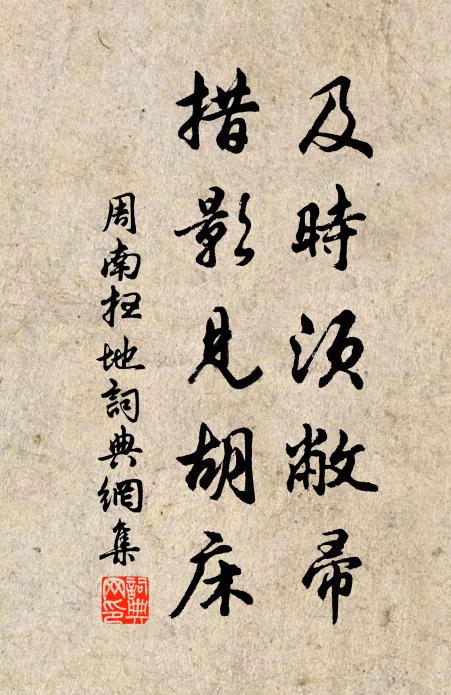 及時須敝帚
措影見胡床
周南扫地詞典網集
詞典網印